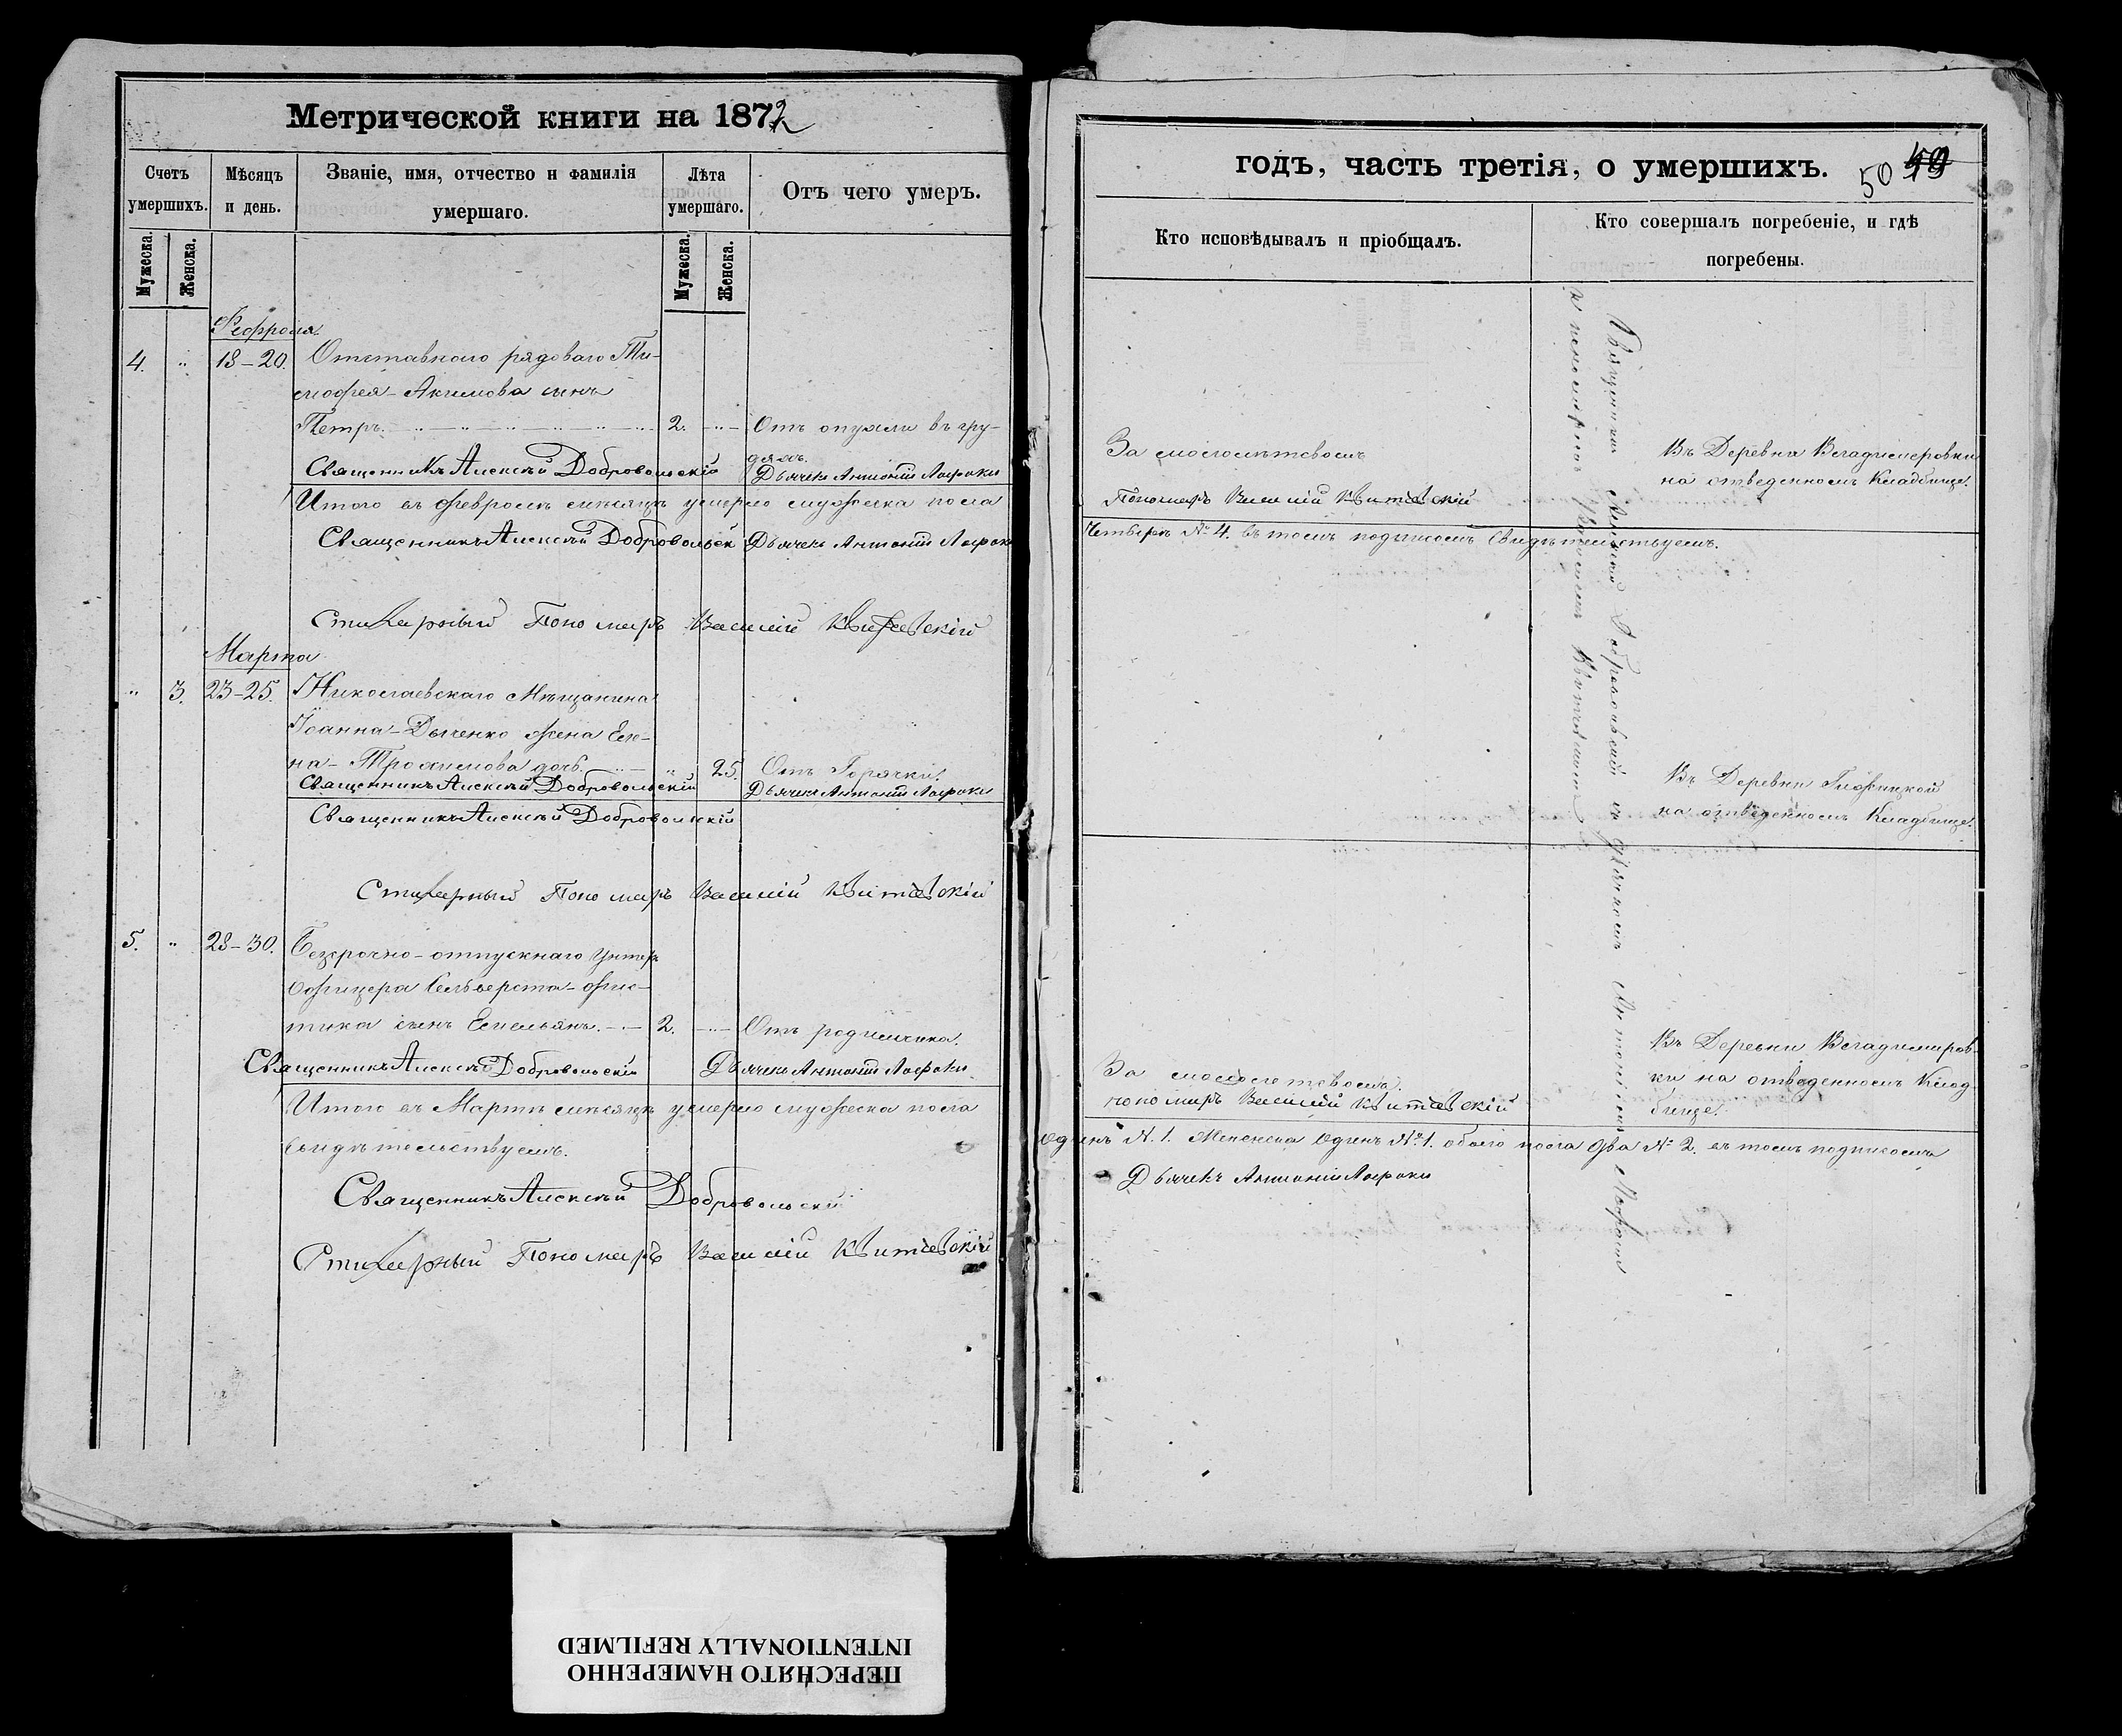 Метрической книги на 1872
Счетъ умершихъ.
Мѣсяцъ и день.
Званіе, имя, отчество и фамилія умершаго.
Лѣта умершаго.
Отъ чего умеръ.
Мужеска.
Женска.
Мужеска.
Женска.
Февроля.
4. " 18-20. Отставнаго рядоваго Ти-
мофея Акимова сынъ
Петръ. 2. Отъ опухли въ гру-
дяхъ.
Священникъ Алексѣй Добровольскій Дьячекъ Антоній
Итого въ Февролѣ мѣсяцѣ умерло мужеска пола
Священникъ Алексѣй Добровольск Дьячекъ Антоній
Стихарный Пономарь Василій
Марта
" 3. 23-25. Николаевскаго Мѣщанина
Іоанна Дьяченко жена Еле-
на Трофимова дочь. " 25. Отъ Горячки.
Священникъ Алексѣй Добровольскій Дьячекъ Антоній
Священникъ Алексѣй Добровольскій
Стихарный Пономарь Василій
5. " 28-30. Безсрочно-отпускнаго Унтеръ
Офицера Сельверста
сынъ Емельянъ. 2. Отъ родимчика.
Священникъ Алексѣй Добровольскій Дьячекъ Антоній
Итого въ Мартѣ мѣсяцѣ умерло мужеска пола
свидѣтельствуемъ.
Священникъ Алексѣй Добровольскій
Стихарный Пономарь Василій
годъ, часть третія, о умершихъ.
50 49
Кто исповѣдывалъ и пріобщалъ.
Кто совершалъ погребеніе, и гдѣ погребены.
За малолѣтсвомъ
Пономарь Василій
Въ Деревна Владимеровки
на отведенномъ Кладбище.
Четыре № 4. въ томъ подписомъ свидѣтельствуемъ.
Священникъ Алексѣй Добровольскій съ дьячкомъ Антоніемъ
и пономаремъ Василіемъ
Въ Деревни
на отведенномъ Кладбище.
За малолетсвомъ.
пономарь Василій
Въ Деревни Владимиров-
ки на отведенномъ Клад-
бище.
одинъ №. 1. Женска Одинъ №. 1. обоего пола два № 2. въ томъ подписомъ
Дьячекъ Антоній
ПЕРЕСНЯТО НАМЕРЕННО
INTENTIONALLY REFILMED